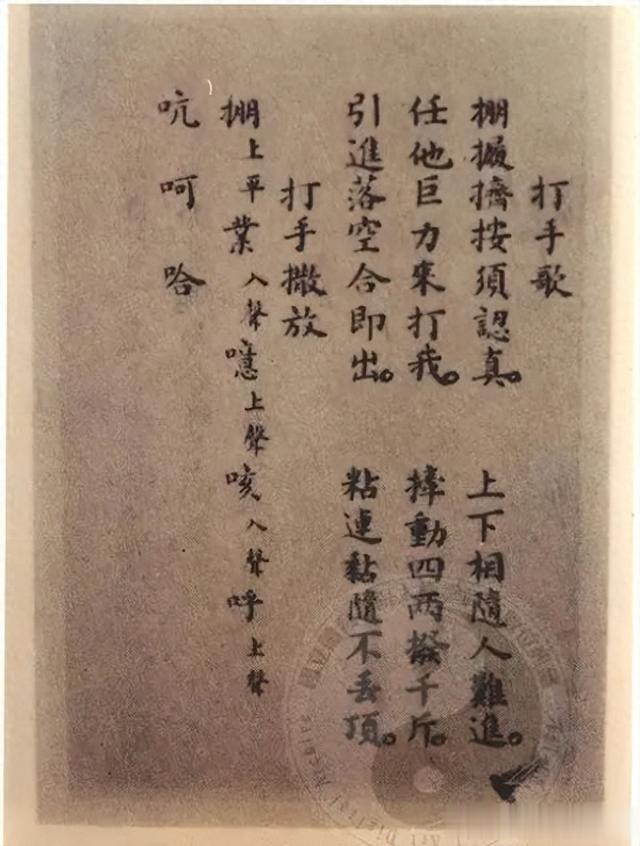 打手歌
掤搌擠按須認真。 上下相隨人難進。
任他巨力來打我。 撁動四兩撥千斤。
引進落空合即出。 粘連黏隨不丟頂。
打手撒放
掤上平業入聲噫上聲咳入聲呼上聲
吭呵哈